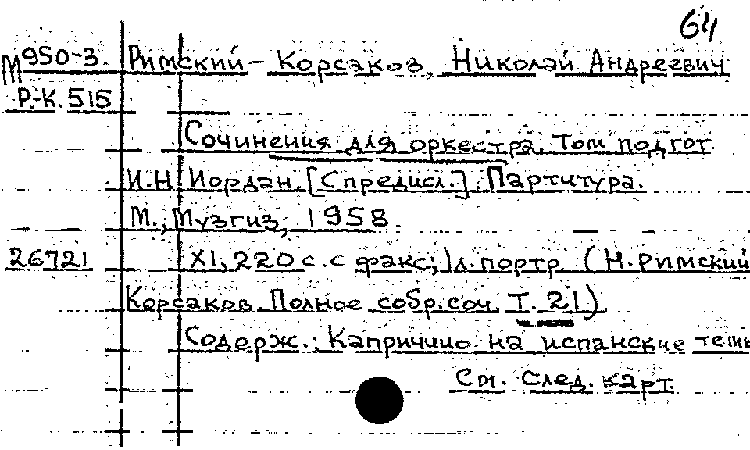 64
М950-3. Римский-Корсаков, Николай Андреевич
Р.-К. 515
Сочинения для оркестра. Том подгот
И.Н. Иордан. [С предисл.]. Партитура.
М., Музгиз, 1958
26721 XI, 220 с. с факс; 1 л. портр. (Н. Римский
Корсаков. Полное собр. соч. Т. 21)
Содерж.: Капричлио на испанские темы
См. след. карт.